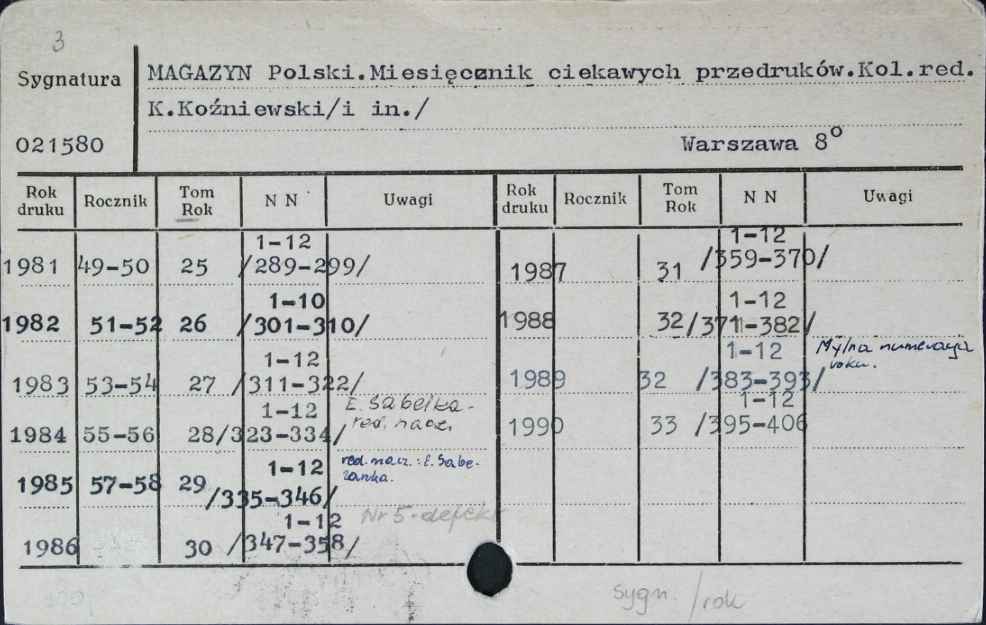 3
Sygnatura
021580
MAGAZYN Polski.Miesięcznik ciekawych przedruków.Kol.red.
K.Koźniewski/i in./
Warszawa 8°
Rok druku Rocznik Tom Rok N N Uwagi Rok druku Rocznik Tom Rok N N Uwagi
1981 49-50 25 1-12 /289-299/
1982 51-52 26 1-10 /301-310/
1983 53-54 27 1-12 /311-322/
1984 55-56 28 1-12 /323-334/ E. Sabełka- red. nacz.
1985 57-58 29 1-12 /335-346/ red. nacz.: E. Sabe-
1986 30 1-12 /347-358/ Nr 5-defekt
1987 31 1-12 /359-370/
1988 32 1-12 /371-382/
1989 32 1-12 /383-393/ Mylna numeracja roku.
1990 33 1-12 /395-406
sygn. /rok